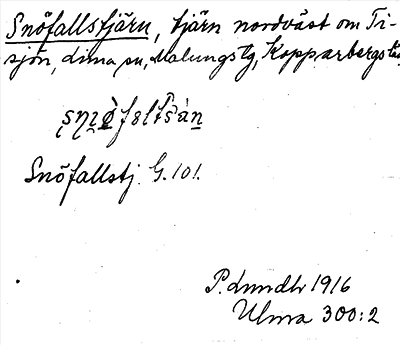 Snöfallstjärn, tjärn nordväst om Ti-
sjön, Lima sn, Malungs tg, Kopparbergs län
Snöfallstj. G. 101.
P. Lundbr 1916
Ulma 300:2